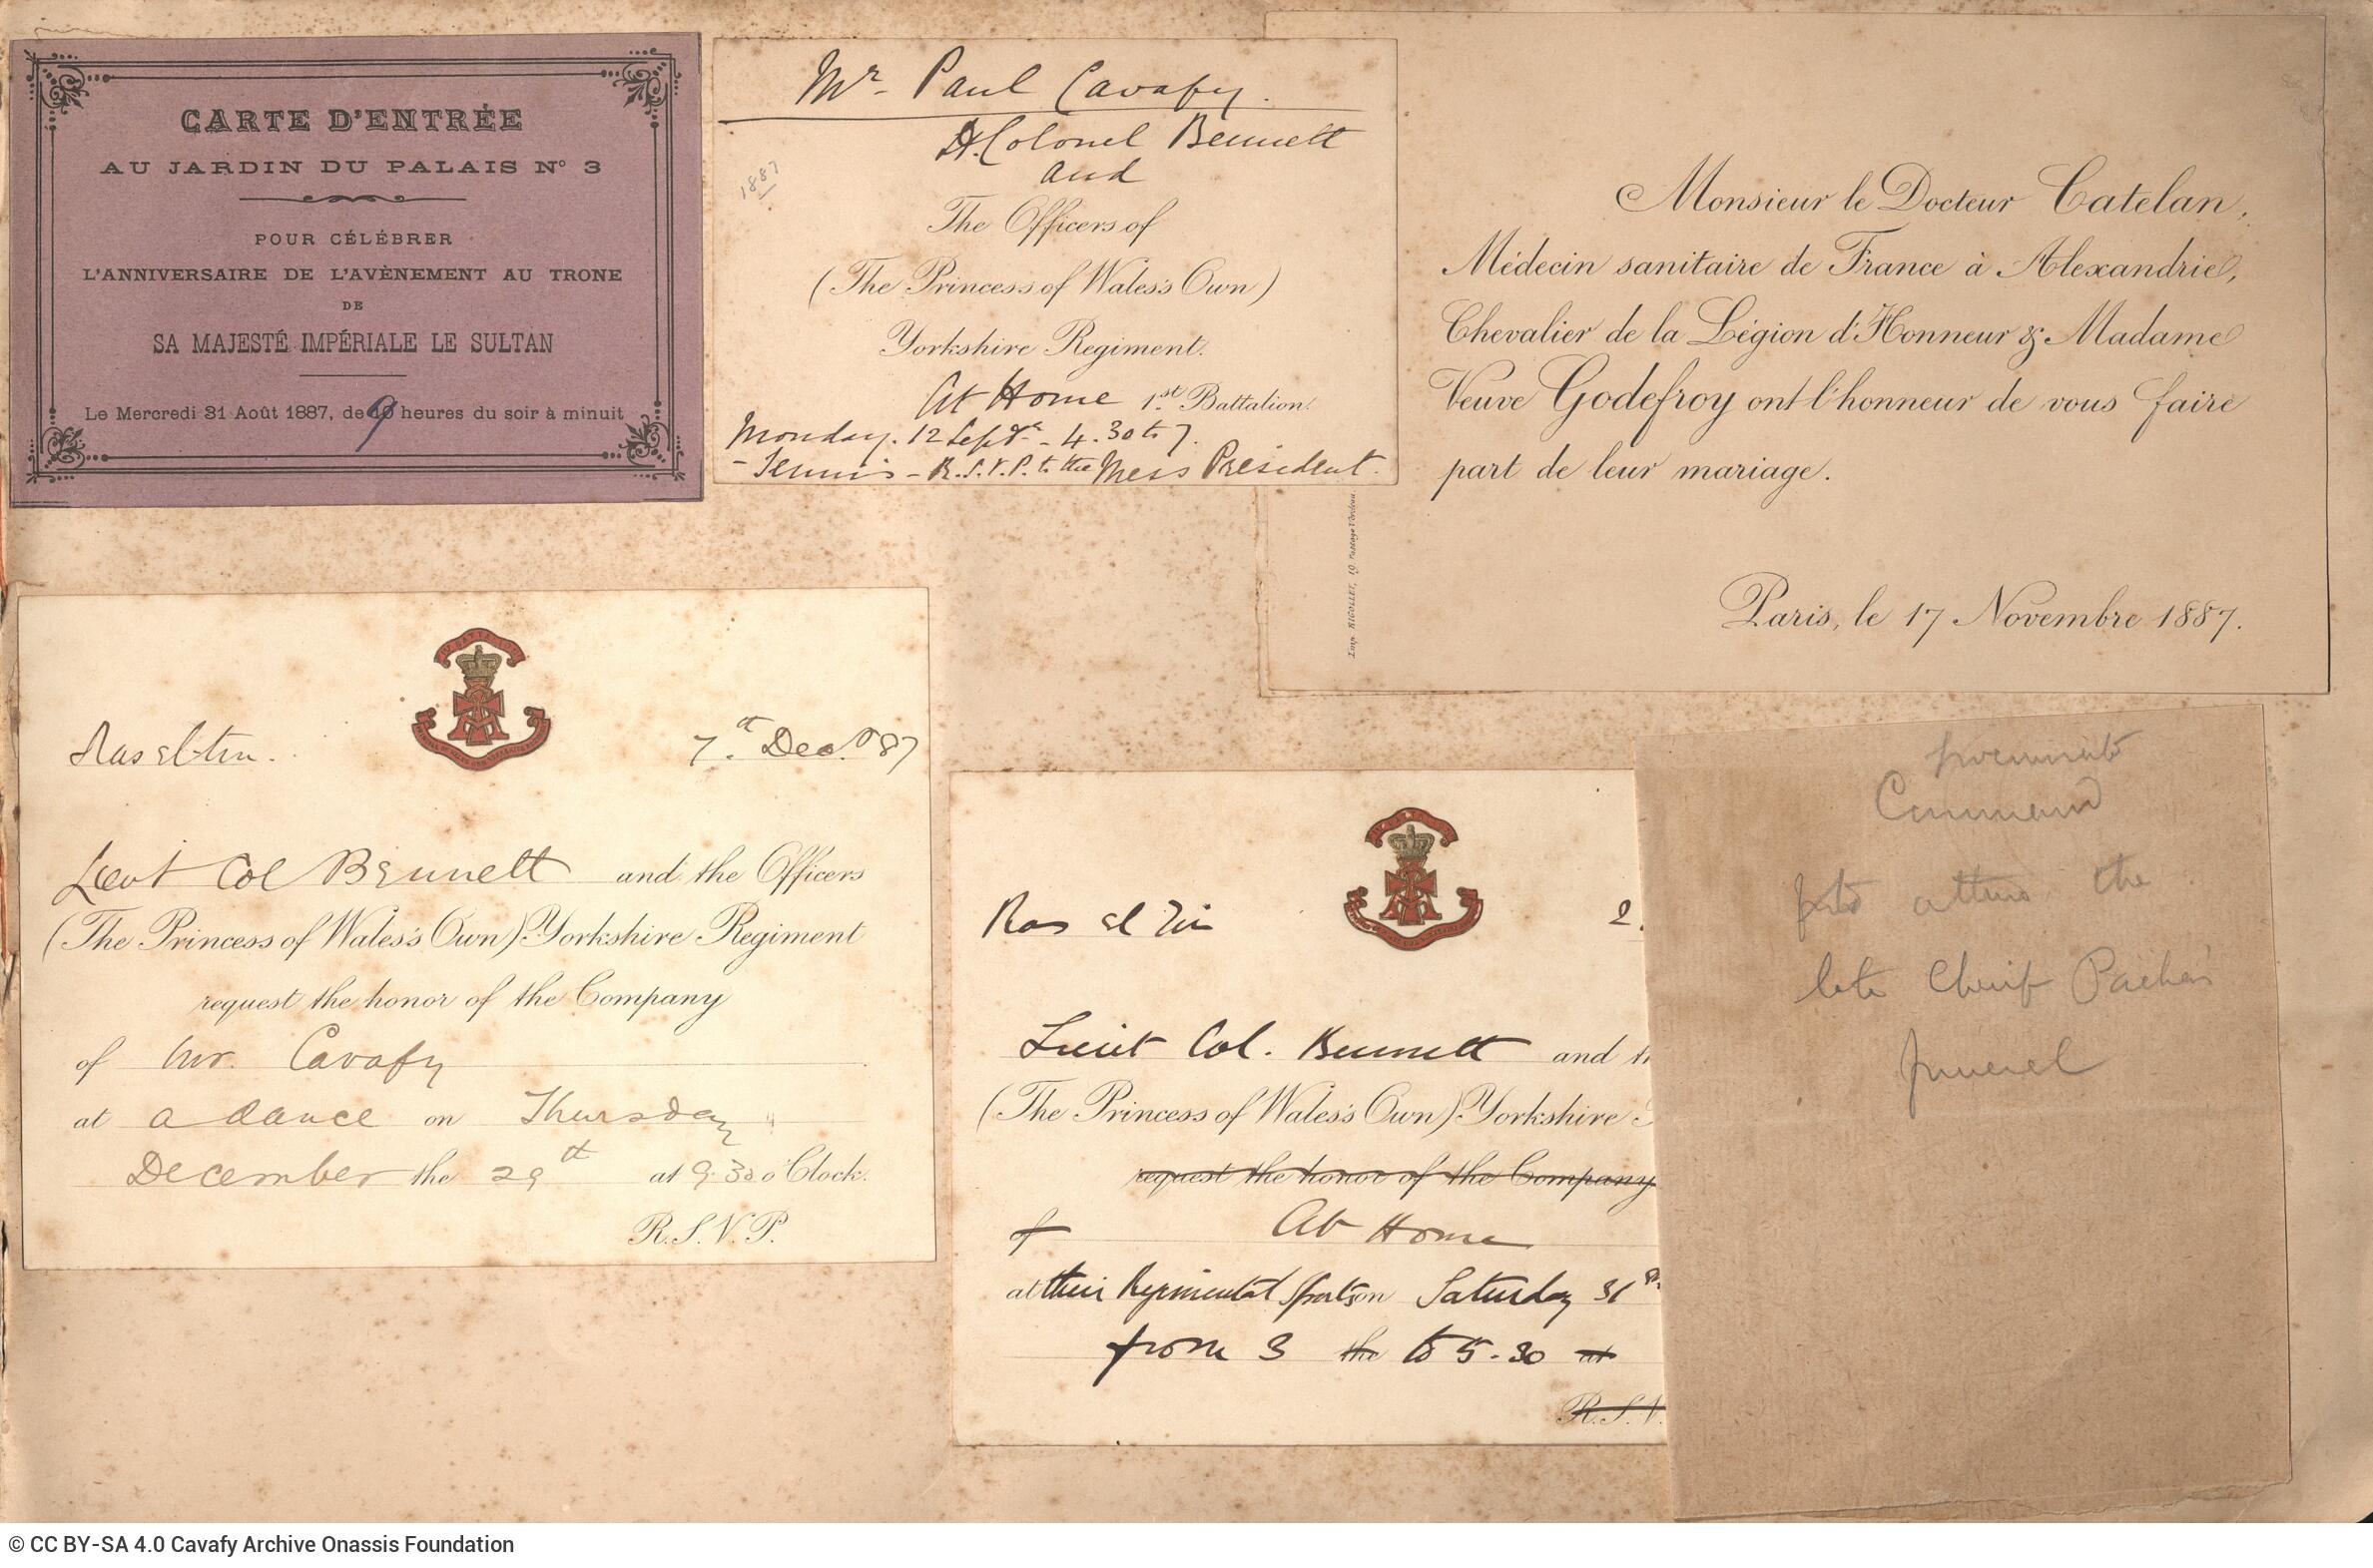 CARTE D'ENTRÉE
AU JARDIN DU PALAIS N° 3
POUR CÉLÉBRER
L'ANNIVERSAIRE DE L'AVÈNEMENT AU TRONE
DE
SA MAJESTÉ IMPÉRIALE LE SULTAN
Le Mercredi 31 Août 1887, de 9 heures du soir à minuit
Mr. Paul Cavafy.
Lt. Colonel Bennett
and
1887
The Officers of
(The Princess of Wales's Own)
Yorkshire Regiment.
At Home 1st Battalion.
Monday. 12 Septr - 4.30 to 7.
- Tennis - R.S.V.P. to the Mess President.
Monsieur le Docteur Catelan,
Médecin sanitaire de France à Alexandrie,
Chevalier de la Légion d'Honneur & Madame
Veuve Godefroy ont l'honneur de vous faire
part de leur mariage.
Paris, le 17 Novembre 1887.
Imp. RIGOLLET, 19 Passage Verdeau.
Ras el tin.
7th Dec. 87
Lieut Col Bennett and the Officers
(The Princess of Wales's Own) Yorkshire Regiment
request the honor of the Company
of Mr. Cavafy
at a dance on Thursday
December the 29th at 9.30 o'Clock.
R.S.V.P.
Ras el Tin 2.
Lieut Col. Bennett and th
(The Princess of Wales's Own) Yorkshire
request the honor of the Company
of At Home
at their Regimental Sports on Saturday 31st
from 3 the to 5.30 at
R.S.V.
Command
attend the
late Cherif Pacha's
funeral
© CC BY-SA 4.0 Cavafy Archive Onassis Foundation